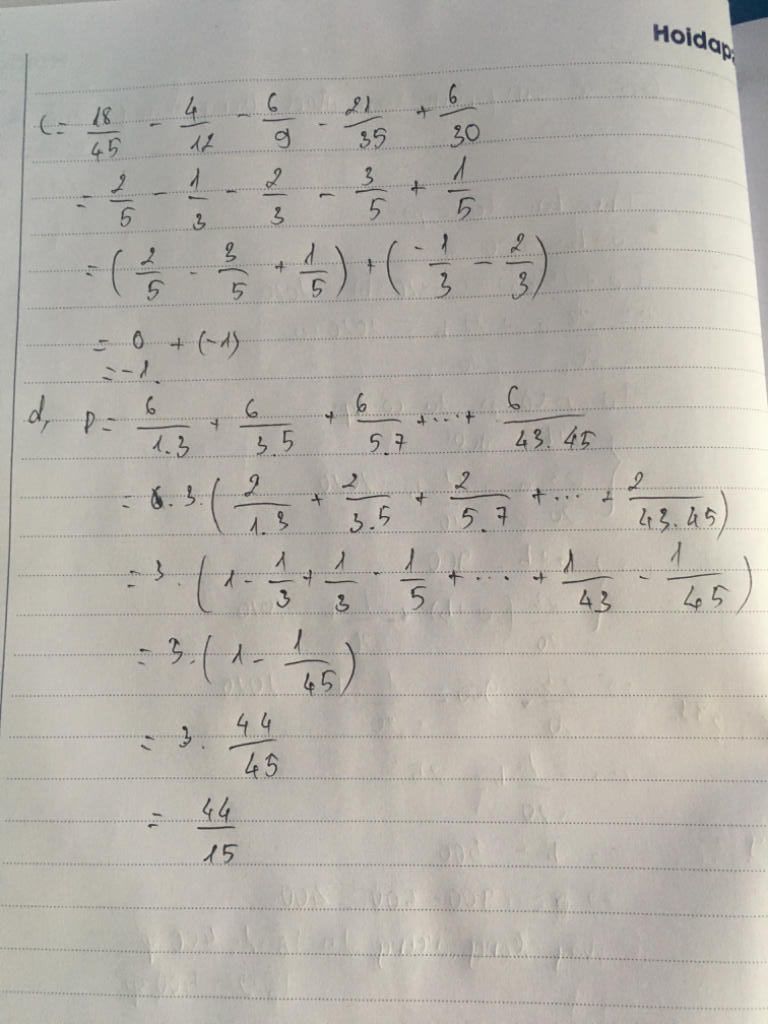 Hoidap
C = 18/45 - 4/12 - 6/9 - 21/35 + 6/30
= 2/5 - 1/3 - 2/3 - 3/5 + 1/5
= (2/5 - 3/5 + 1/5) + (-1/3 - 2/3)
= 0 + (-1)
= -1.
d, D = 6/1.3 + 6/3.5 + 6/5.7 + ... + 6/43.45
= 3.(2/1.3 + 2/3.5 + 2/5.7 + ... + 2/43.45)
= 3.(1 - 1/3 + 1/3 - 1/5 + ... + 1/43 - 1/45)
= 3.(1 - 1/45)
= 3. 44/45
= 44/15